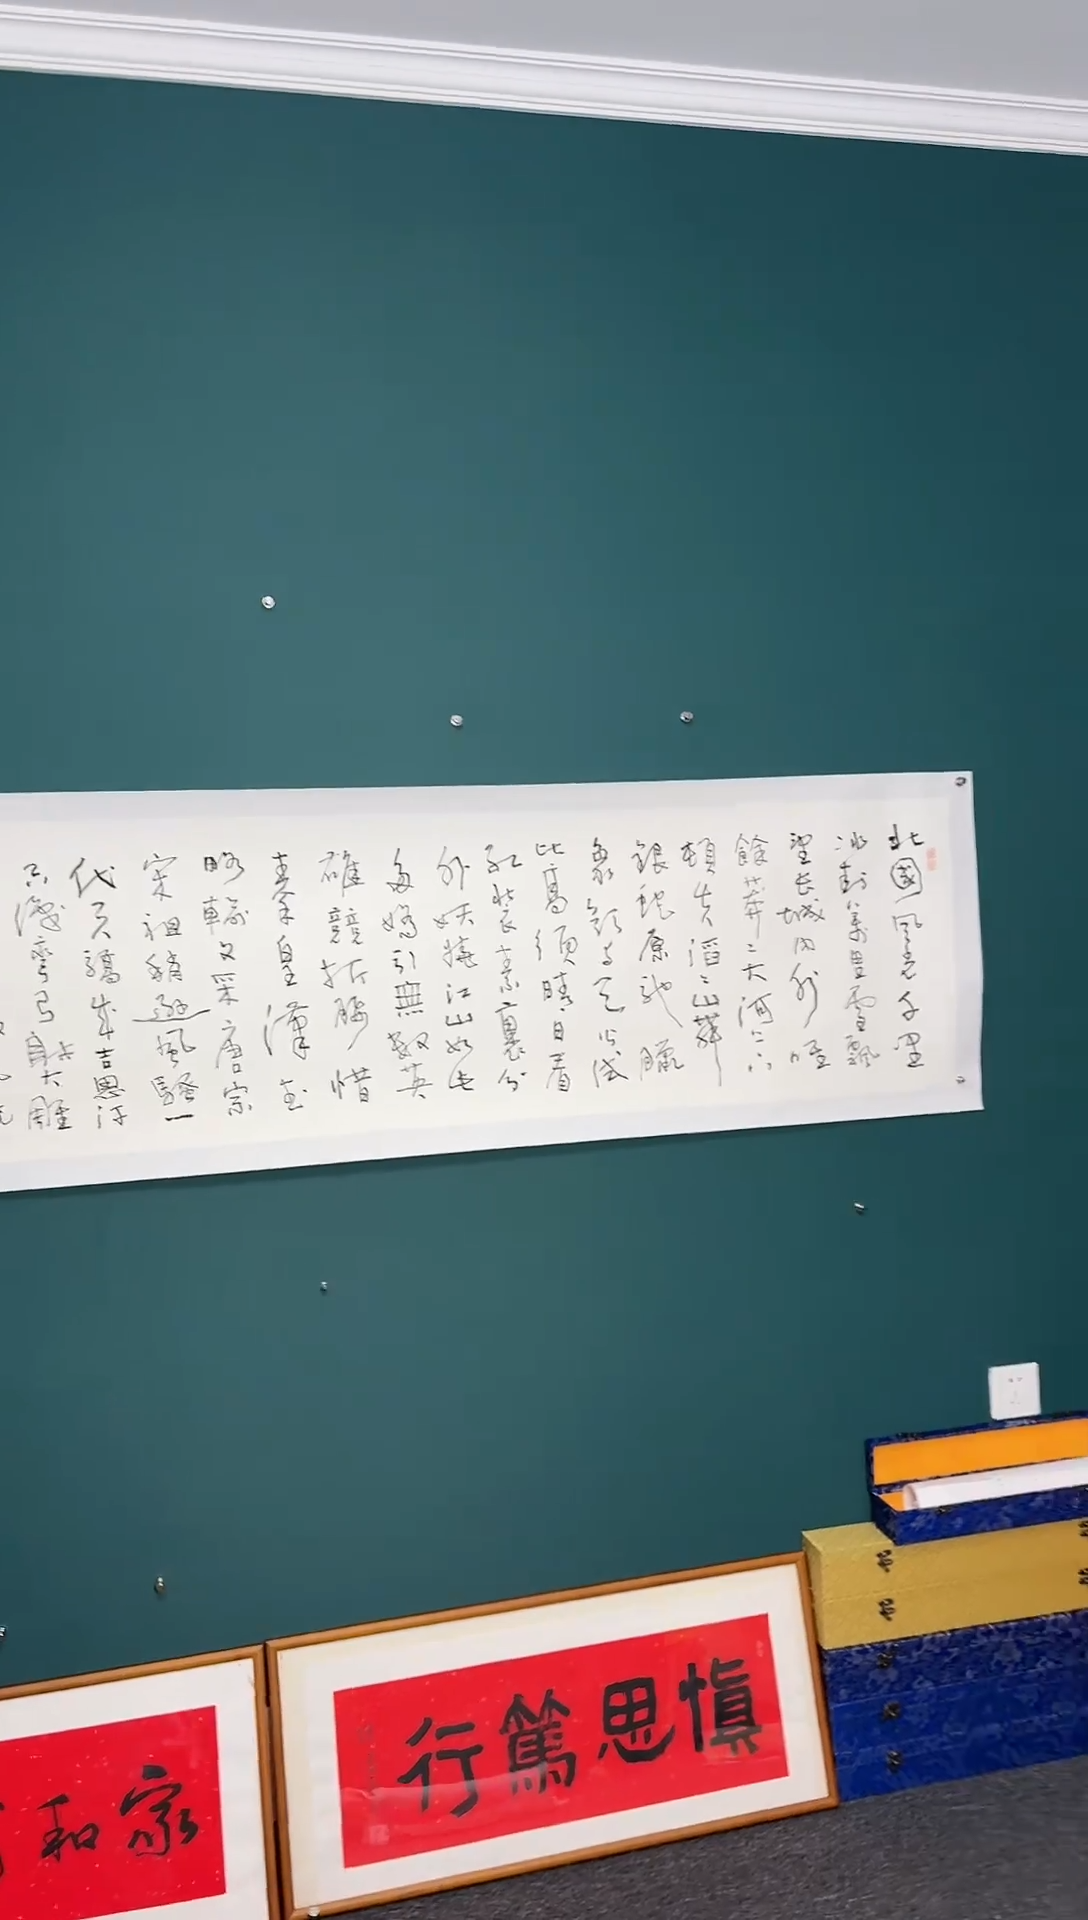 北國風光千里
冰封萬里雪飄
望長城内外唯
餘莽〻大河上下
頓失滔〻山舞
銀蛇原馳臘
象欲與天公試
比高須晴日看
紅裝素裹分
外妖嬈江山如此
多嬌引無數英
雄競折腰惜
秦皇漢武
略輸文采唐宗
宋祖稍遜風騷一
代天驕成吉思汗
只識彎弓射大雕
慎思篤行
家和